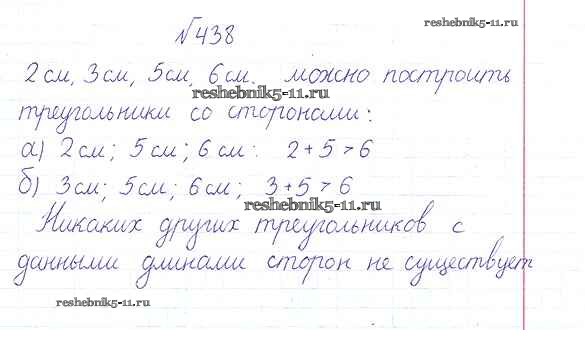 №438
reshebnik5-11.ru
2 см, 3 см, 5 см, 6 см. можно построить
reshebnik5-11.ru
треугольники со сторонами:
а) 2 см; 5 см; 6 см: 2 + 5 > 6
б) 3 см; 5 см; 6 см; 3 + 5 > 6
reshebnik5-11.ru
Никаких других треугольников с
данными длинами сторон не существует
reshebnik5-11.ru